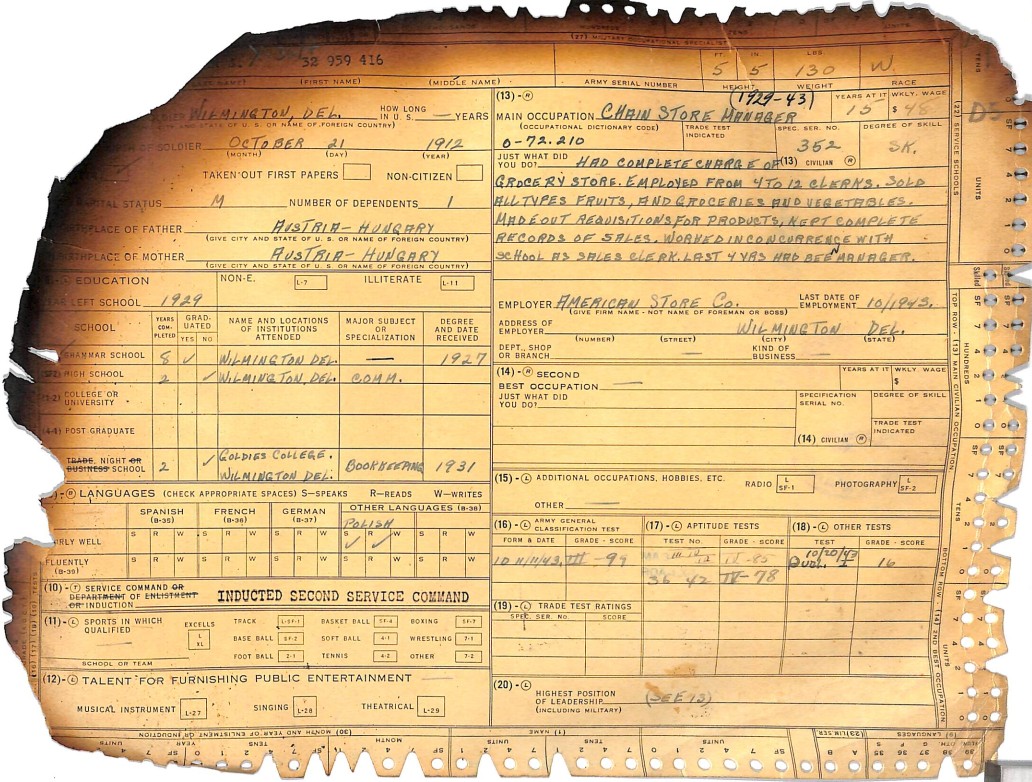 (27) MILITARY OCCUPATIONAL SPECIALIST
32 959 416
FT. IN LBS
5 5 130 W.
(FIRST NAME) (MIDDLE NAME) ARMY SERIAL NUMBER HEIGHT WEIGHT RACE
WILMINGTON, DEL. HOW LONG IN U.S. — YEARS
AND STATE OF U. S. OR NAME OF FOREIGN COUNTRY)
OF SOLDIER OCTOBER 21 1912
(MONTH) (DAY) (YEAR)
TAKEN OUT FIRST PAPERS NON-CITIZEN
STATUS M NUMBER OF DEPENDENTS 1
PLACE OF FATHER AUSTRIA-HUNGARY
(GIVE CITY AND STATE OF U. S. OR NAME OF FOREIGN COUNTRY)
PLACE OF MOTHER AUSTRIA-HUNGARY
(GIVE CITY AND STATE OF U. S. OR NAME OF FOREIGN COUNTRY)
EDUCATION NON-E. L-7 ILLITERATE L-11
LEFT SCHOOL 1929
SCHOOL YEARS COMPLETED GRADUATED YES NO NAME AND LOCATIONS OF INSTITUTIONS ATTENDED MAJOR SUBJECT OR SPECIALIZATION DEGREE AND DATE RECEIVED
GRAMMAR SCHOOL 8 ✓ WILMINGTON DEL. — 1927
HIGH SCHOOL 2 ✓ WILMINGTON, DEL. COMM.
COLLEGE OR UNIVERSITY
POST GRADUATE
TRADE, NIGHT OR BUSINESS SCHOOL 2 ✓ GOLDIES COLLEGE. WILMINGTON DEL. BOOKKEEPING 1931
LANGUAGES (CHECK APPROPRIATE SPACES) S—SPEAKS R—READS W—WRITES
SPANISH (B-35) FRENCH (B-36) GERMAN (B-37) OTHER LANGUAGES (B-38)
POLISH
S R W S R W S R W S R W S R W
RLY WELL ✓ ✓
FLUENTLY S R W S R W S R W S R W S R W
(B-39)
(10)-(T) SERVICE COMMAND OR DEPARTMENT OF ENLISTMENT OR INDUCTION INDUCTED SECOND SERVICE COMMAND
(11)-(L) SPORTS IN WHICH QUALIFIED EXCELLS L XL
TRACK L-SF-1 BASKET BALL SF-4 BOXING SF-7
BASE BALL SF-2 SOFT BALL 4-1 WRESTLING 7-1
FOOT BALL 2-1 TENNIS 4-2 OTHER 7-2
SCHOOL OR TEAM
(12)-(L) TALENT FOR FURNISHING PUBLIC ENTERTAINMENT —
MUSICAL INSTRUMENT L-27 SINGING L-28 THEATRICAL L-29
(13)-(R) (1929-43) YEARS AT IT 15 WKLY. WAGE $ 48
MAIN OCCUPATION CHAIN STORE MANAGER
(OCCUPATIONAL DICTIONARY CODE) TRADE TEST INDICATED SPEC. SER. NO. DEGREE OF SKILL
0-72.210 352 SK.
JUST WHAT DID YOU DO? HAD COMPLETE CHARGE OF (13) CIVILIAN (R)
GROCERY STORE. EMPLOYED FROM 4 TO 12 CLERKS. SOLD
ALL TYPES FRUITS, AND GROCERIES AND VEGETABLES.
MADE OUT REQUISITIONS FOR PRODUCTS, KEPT COMPLETE
RECORDS OF SALES. WORKED IN CONCURRENCE WITH
SCHOOL AS SALES CLERK. LAST 4 YRS HAD BEEN MANAGER.
EMPLOYER AMERICAN STORE CO. LAST DATE OF EMPLOYMENT 10/1943.
(GIVE FIRM NAME - NOT NAME OF FOREMAN OR BOSS)
ADDRESS OF EMPLOYER WILMINGTON DEL.
(NUMBER) (STREET) (CITY) (STATE)
DEPT., SHOP OR BRANCH — KIND OF BUSINESS —
(14)-(R) SECOND BEST OCCUPATION — YEARS AT IT WKLY. WAGE $
JUST WHAT DID YOU DO? SPECIFICATION SERIAL NO. DEGREE OF SKILL
TRADE TEST INDICATED
(14) CIVILIAN (R)
(15)-(L) ADDITIONAL OCCUPATIONS, HOBBIES, ETC. RADIO L SF-1 PHOTOGRAPHY L SF-2
OTHER —
(16)-(L) ARMY GENERAL CLASSIFICATION TEST (17)-(L) APTITUDE TESTS (18)-(L) OTHER TESTS
FORM & DATE GRADE - SCORE TEST NO. GRADE - SCORE TEST GRADE - SCORE
III -99 IV -85 10/20/43 QUAL. I 16
36 42 IV -78
(19)-(L) TRADE TEST RATINGS
SPEC. SER. NO. SCORE
(20)-(L) HIGHEST POSITION OF LEADERSHIP (SEE 13)
(INCLUDING MILITARY)
(22) SERVICE SCHOOLS
TOP ROW - (13) MAIN CIVILIAN OCCUPATION
BOTTOM ROW - (14) 2ND BEST OCCUPATION
TENS
UNITS
HUNDREDS
TENS
UNITS
(30) MONTH AND YEAR OF ENLISTMENT OR INDUCTION
MONTH
(1) NAME
(9) LANGUAGES